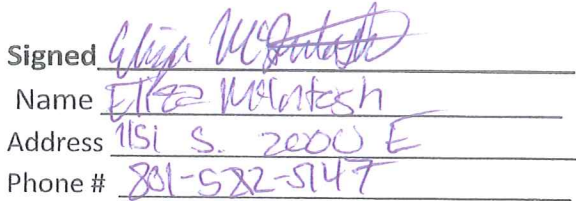 Signed Eliza McIntosh
Name Eliza McIntosh
Address 1151 S. 2000 E
Phone # 801-582-5147